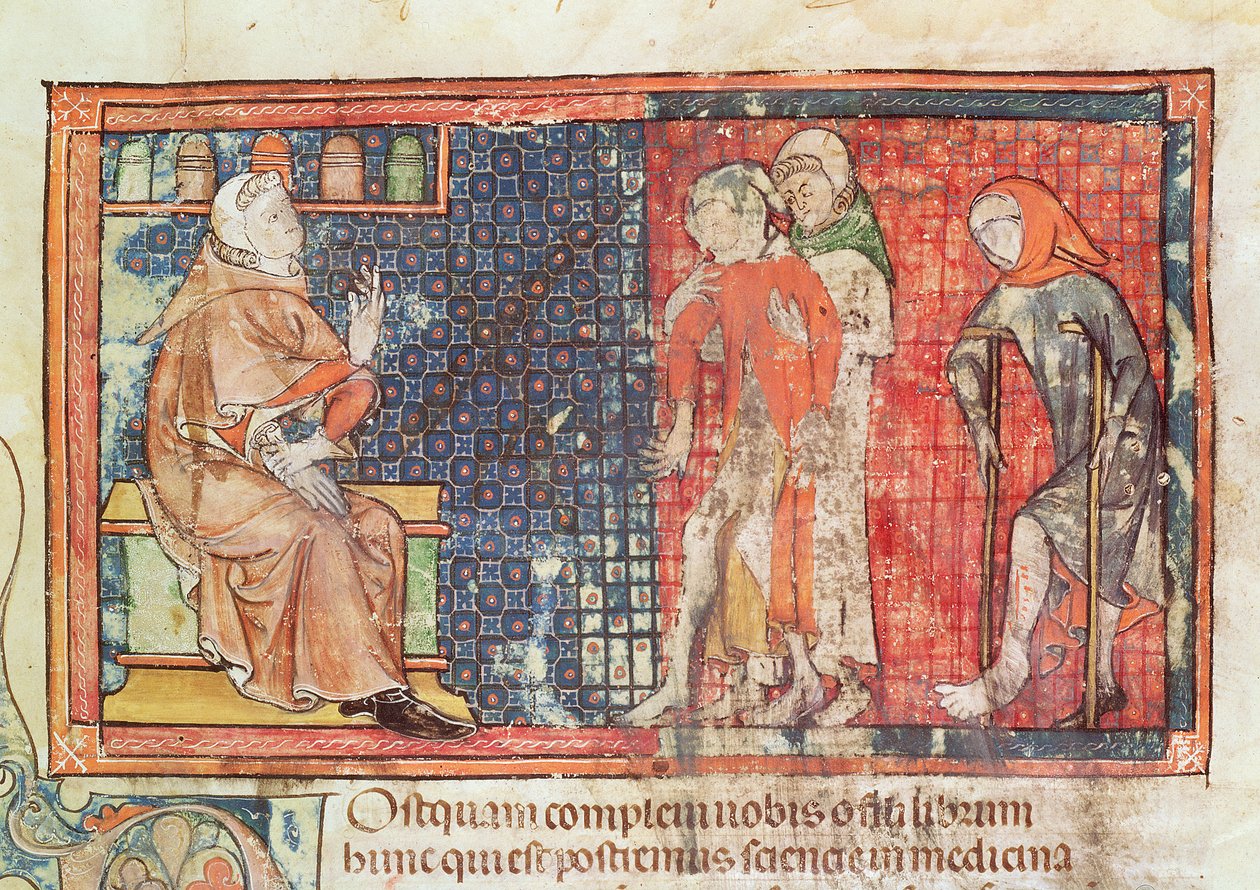 Ostquam compleui uobis o filii librum
hunc qui est postremus sciencie in medicina